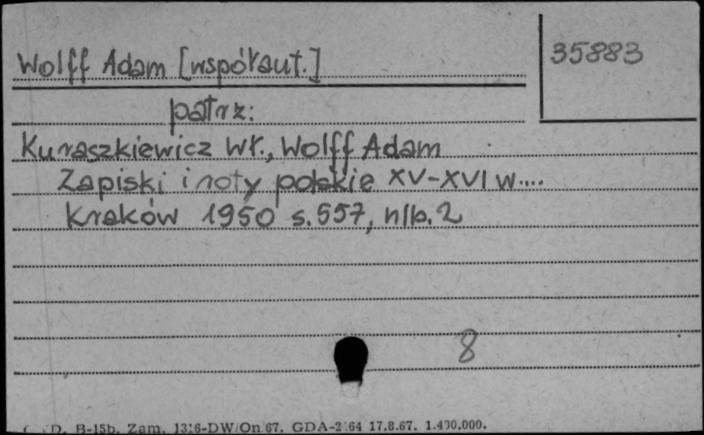 Wolff Adam [współaut.]
35883
patrz:
Kuraszkiewicz Wł., Wolff Adam
Zapiski i roty polskie XV-XVI w....
Kraków 1950 s. 557, nlb. 2
8
D. B-15b. Zam. 1316-DW/On/67. GDA-2/64 17.8.67. 1.400.000.